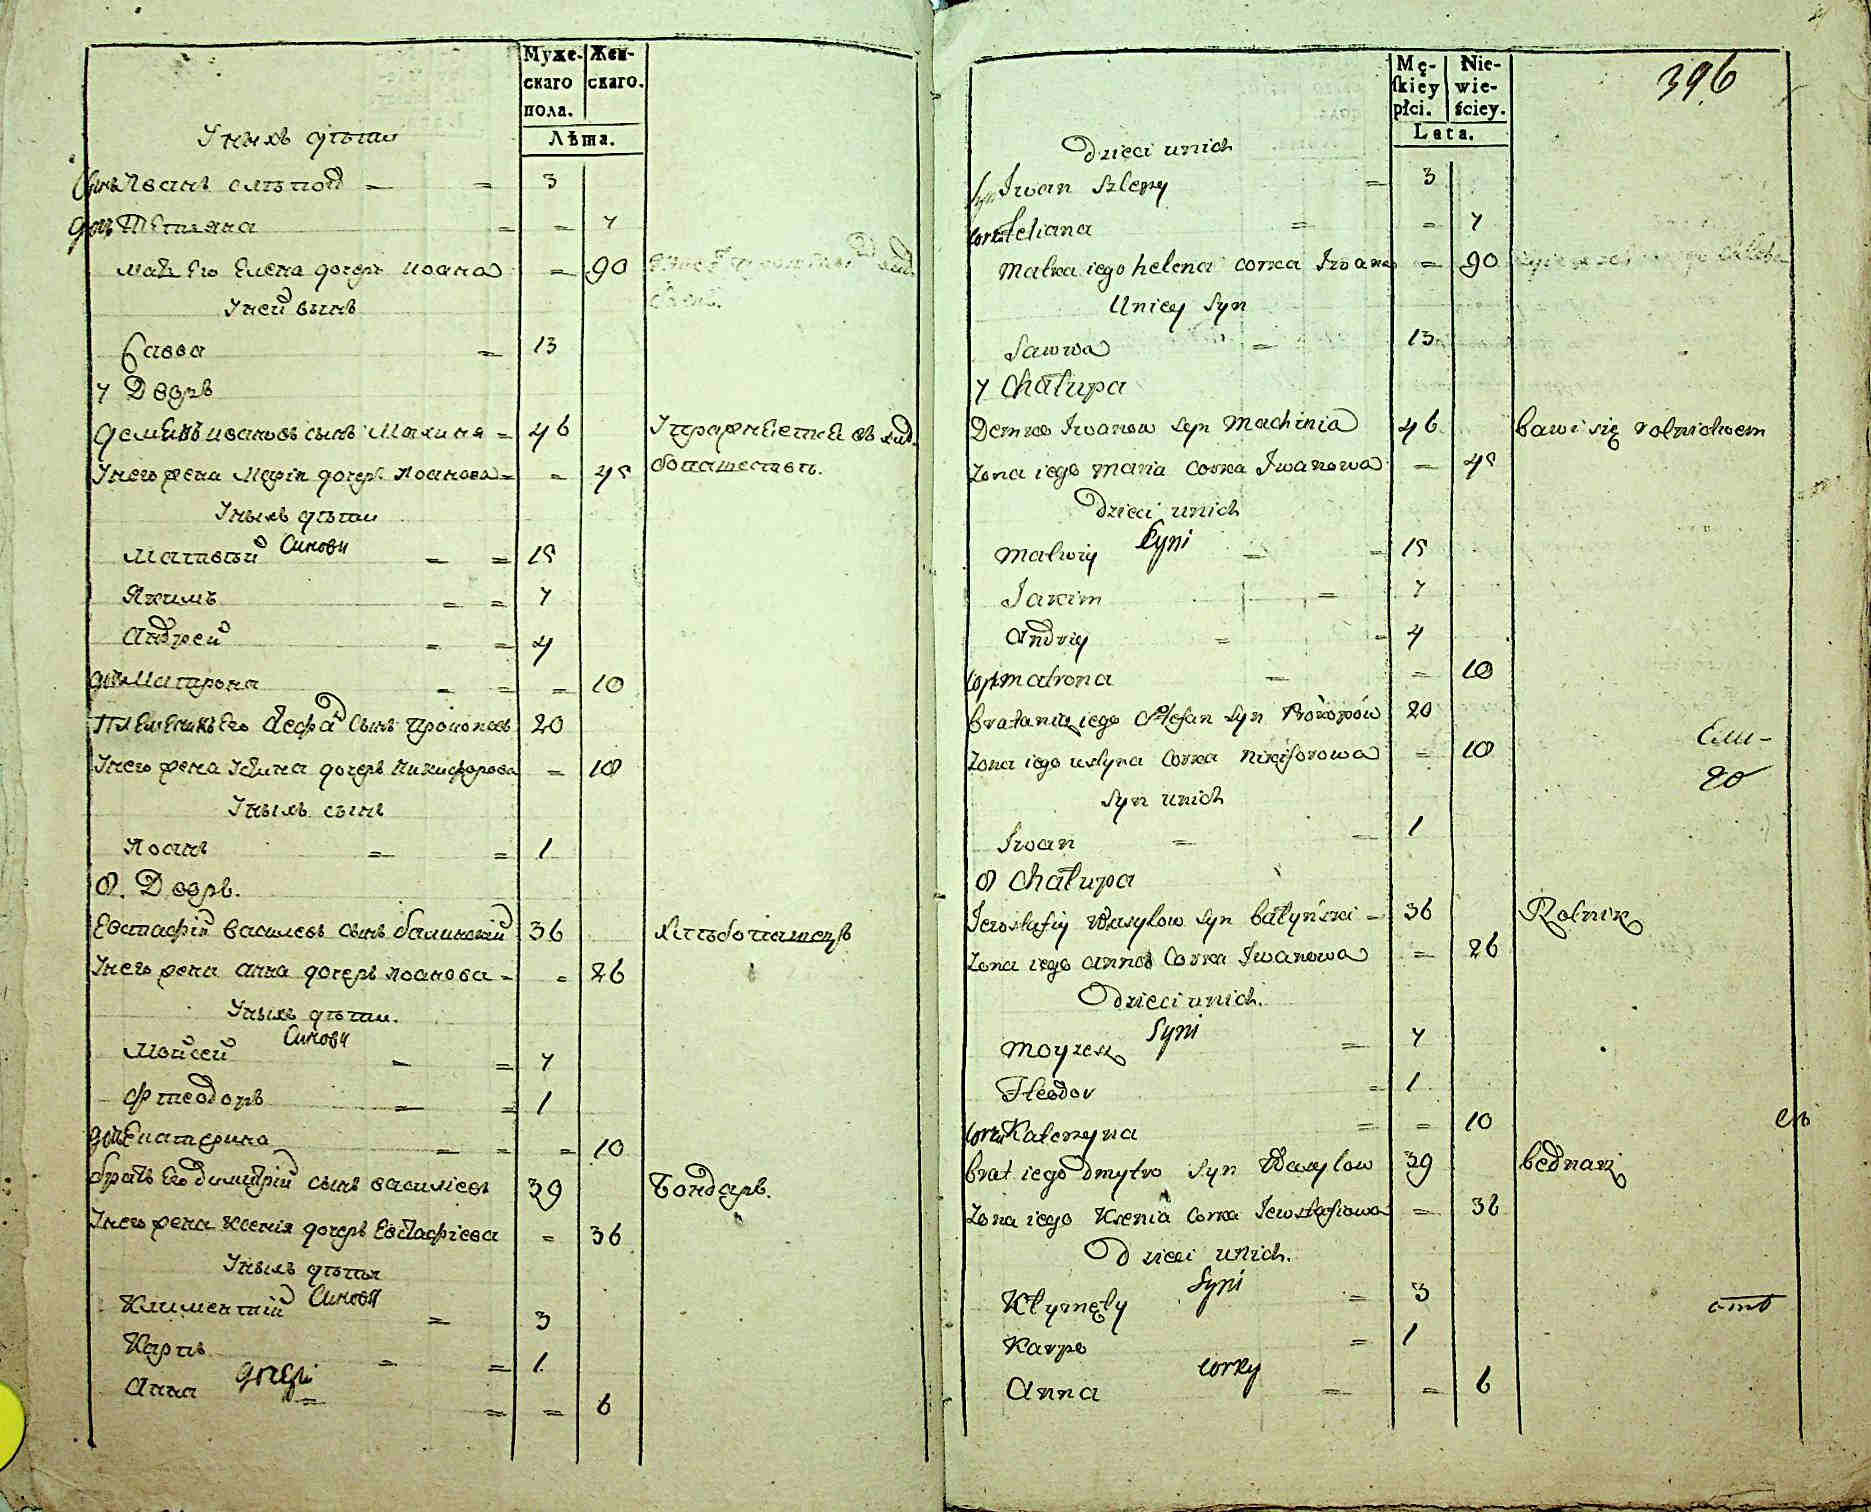 Муже- Жен-
скаго скаго.
пола.
Лѣта.
Уныхъ дѣти
Сынъ Иванъ слѣпой 3
дочь Тетяна 7
мать Его Елена дочерь иоана 90
Уней сынъ
Савва 13
7 Дворъ
Демянъ ивановъ сынъ Махиня 46 Упражняется въ хлѣ-
Унего жена Марія дочерь Иоанова 45 бопашествѣ.
Уныхъ дѣти
Синови
Матвѣй 15
Якимъ 7
Андрей 4
дочь Матрона 10
Племеникъ Его Стефа сынъ Прокоповъ 20
Унего жена Устина дочерь Никифорова 18
Уныхъ сынъ
Иоанъ 1
8. Дворъ.
Евстафій василевъ сынъ балинскій 36 Хлѣбопашецъ
Унего жена анна дочерь иоанова 26
Уныхъ дѣти.
Синови
Мойсей 7
Фтеодоръ 1
дочь Екатерина 10
братъ Его димитрій сынъ василіевъ 39 Бондарь.
Унего жена ксенія дочерь Евстафіева 36
Уныхъ дѣти
Синови
Климентій 3
Карпъ 1
дочері
Анна 6
396
Mę- Nie-
skiey wie-
płci. ściey.
Lata.
Dzieci unich
syn Iwan szlepy 3
corka Tetiana 7
Matka iego helena corka Iwana 90
Uniey Syn
Sawwa 13
7 Chałupa
Demko Iwanow syn Machinia 46 bawi się rolnictwem
Zona iego maria corka Iwanowa 45
Dzieci unich
Syni
Matwiy 15
Jakim 7
Andriy 4
corka matrona 10
bratanik iego Stefan syn Prokopów 20
Zona iego ustyna Corka nikiforowa 18
Syn unich
Iwan 1
8 Chałupa
Jewstafiy Wasylow syn bałyński 36 Rolnik
Zona iego anna Corka Iwanowa 26
Dzieci unich.
Syni
Moyzesz 7
Fteodor 1
corka Katerzyna 10
brat iego Dmytro syn Wasylow 39 bednarz
Zona iego Ksenia Corka Jewstafiowa 36
Dzieci unich.
Syni
Kłymęty 3
Karpo 1
corky
Anna 6